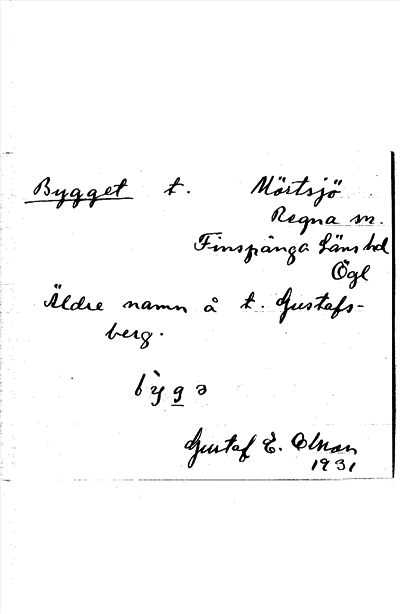 Bygget t. Mörtsjö
Regna sn.
Finspånga Läns hd
Ögl
Äldre namn å t. Gustafs-
berg.
bỳgə
Gustaf E. Olson
1931